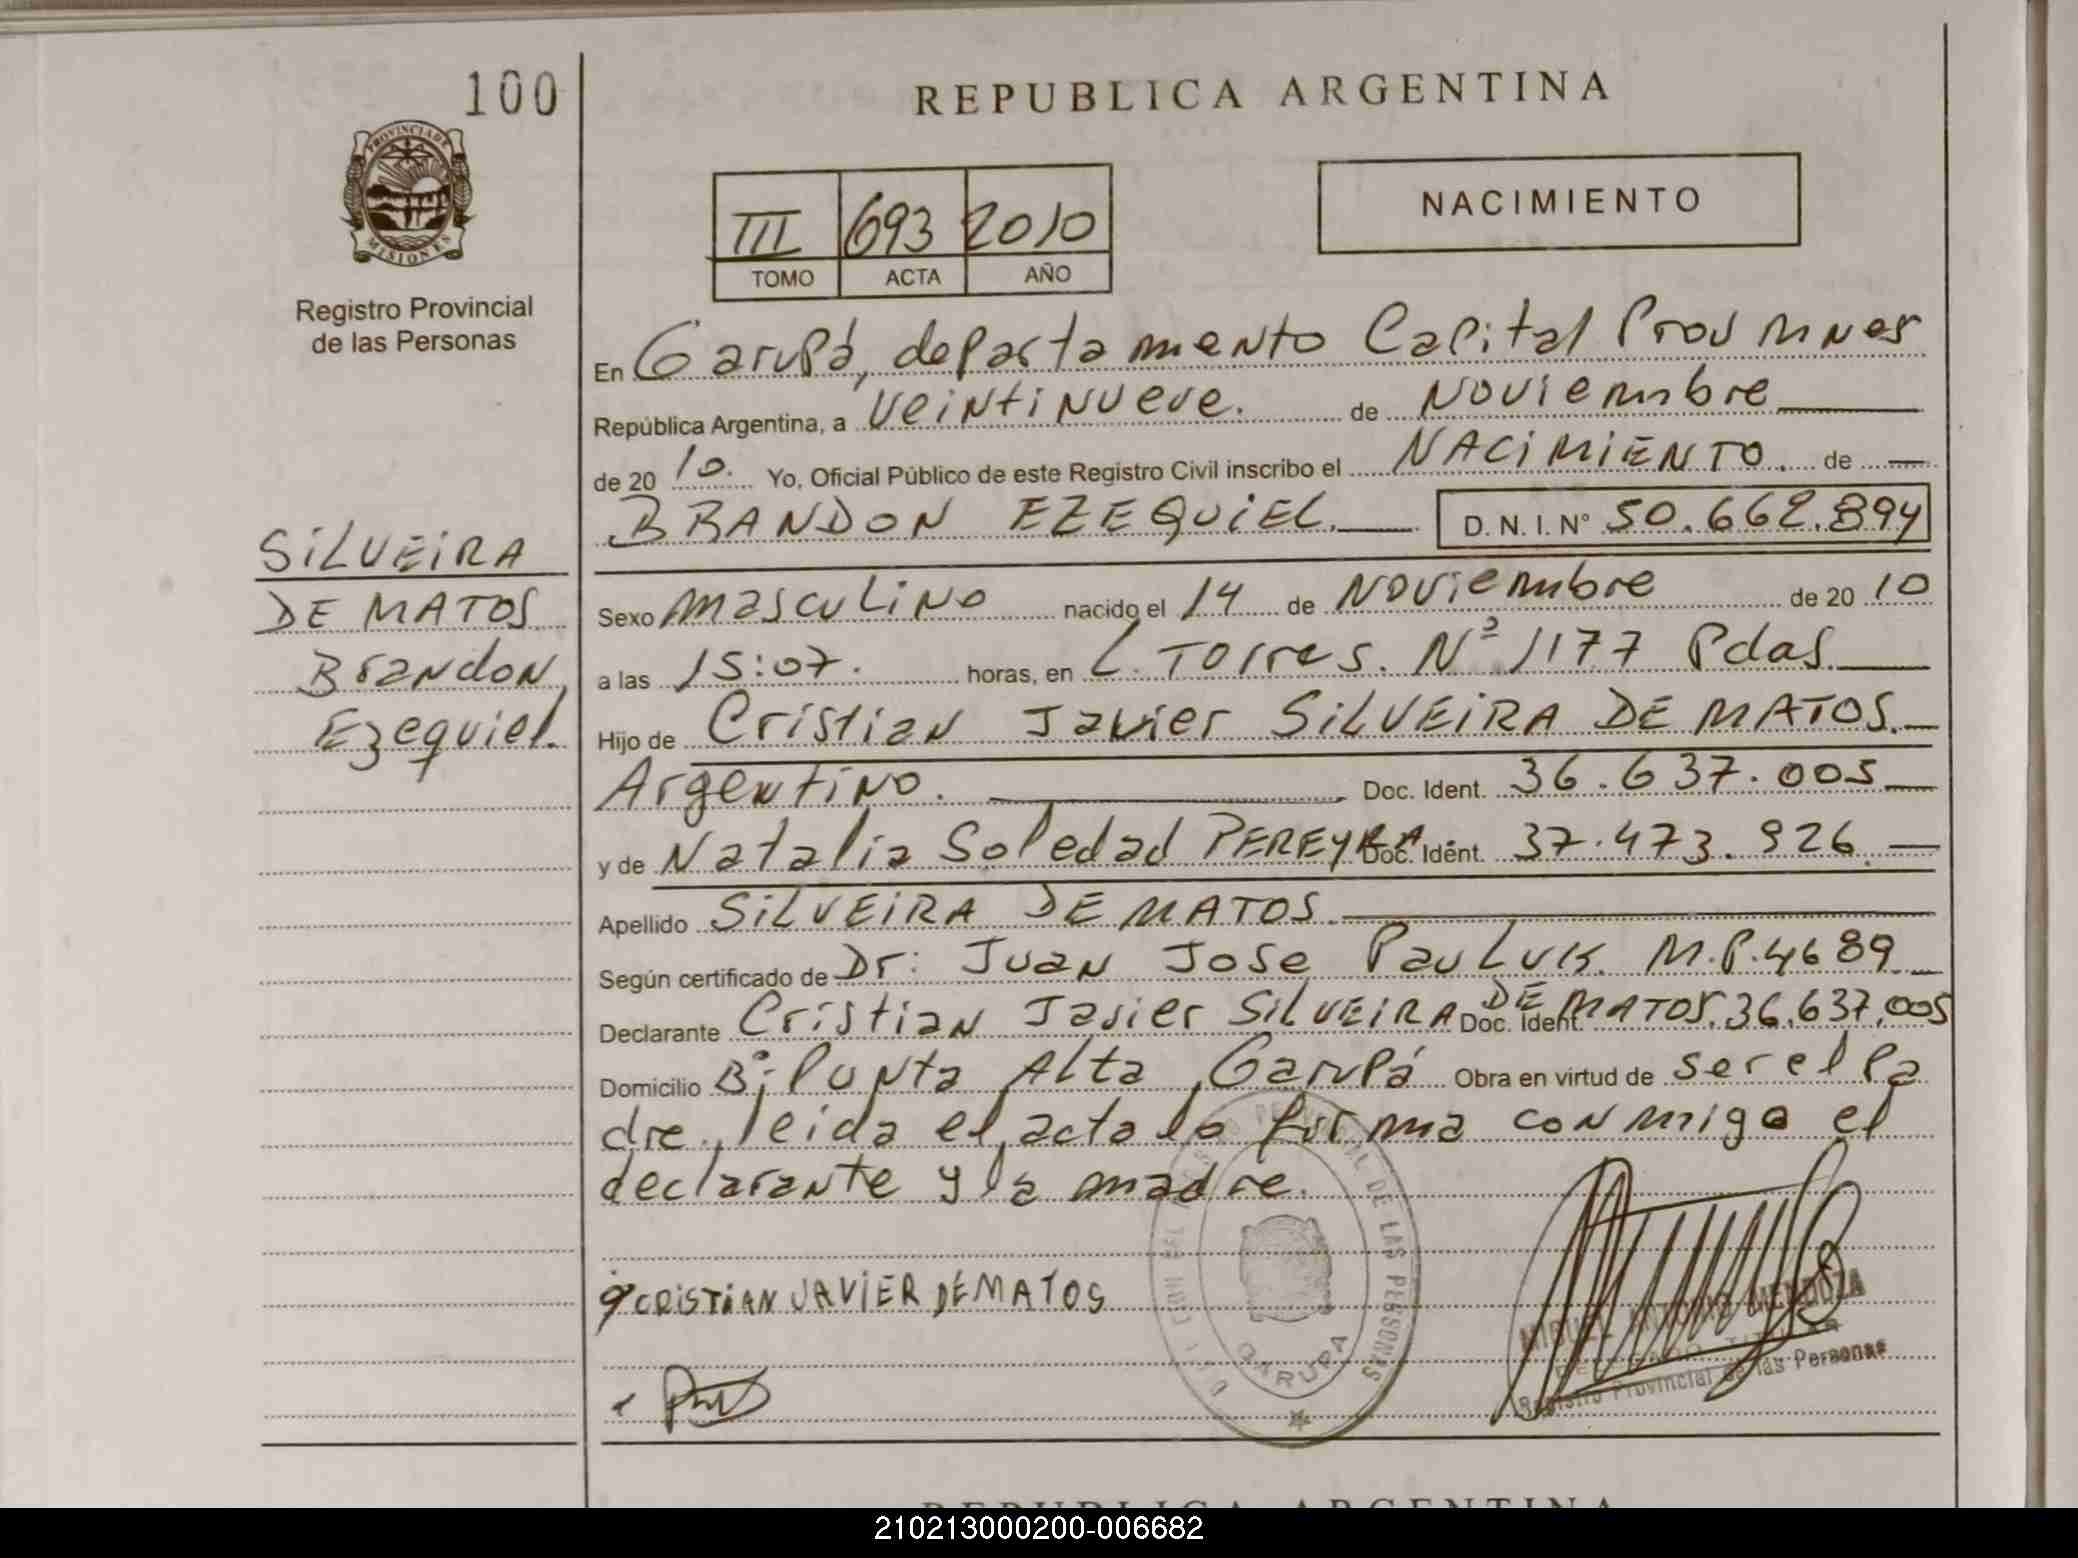 100
PROVINCIA DE
MISIONES
Registro Provincial
de las Personas
SILVEIRA
DE MATOS
Brandon
Ezequiel.
REPUBLICA ARGENTINA
III 693 2010
TOMO ACTA AÑO
NACIMIENTO
En Garupá, departamento Capital Prov Mnes
República Argentina, a veintinueve. de Noviembre
de 20 10. Yo, Oficial Público de este Registro Civil inscribo el NACIMIENTO. de
BRANDON EZEQUIEL. D. N. I. N° 50.662.894
Sexo masculino nacido el 14 de Noviembre de 20 10
a las 15:07. horas, en L. Torres. Nº 1177 Pdas.
Hijo de Cristian Javier SILVEIRA DE MATOS.
Argentino. Doc. Ident. 36.637.005
y de Natalia Soledad PEREYRA Doc. Ident. 37.473.926.
Apellido SILVEIRA DE MATOS.
Según certificado de Dr: Juan Jose Pauluk. M.P.4689
Declarante Cristian Javier SILVEIRA DE MATOS. Doc. Ident. 36.637.005
Domicilio Bº: Punta Alta, Garupá Obra en virtud de ser el pa
dre., leida el acta lo firma conmigo el
declarante y la madre.
CRISTIAN JAVIER DEMATOS
DE LAS PERSONAS
GARUPA
MIGUEL ANTONIO MENDOZA
TITULAR
Registro Provincial de las Personas
REPUBLICA ARGENTINA
210213000200-006682